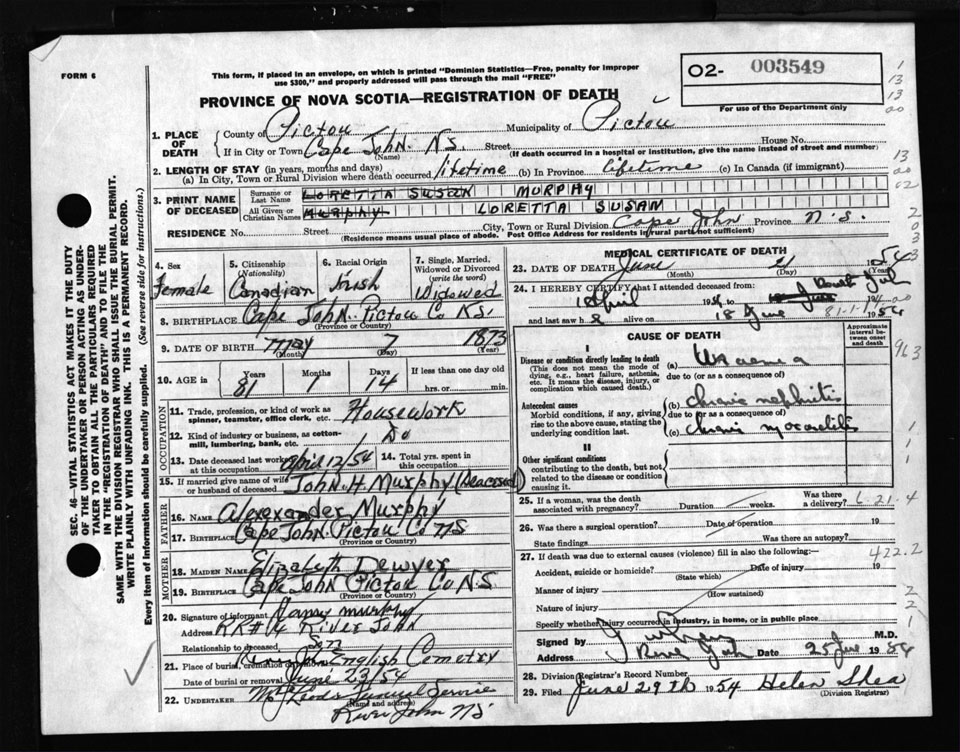 FORM 6
This form, if placed in an envelope, on which is printed "Dominion Statistics—Free, penalty for improper
use $300," and properly addressed will pass through the mail "FREE"
O2- 003549
For use of the Department only
PROVINCE OF NOVA SCOTIA—REGISTRATION OF DEATH
1. PLACE OF DEATH
County of Pictou Municipality of Pictou
If in City or Town Cape John. N.S. Street House No.
(Name) (If death occurred in a hospital or institution, give the name instead of street and number)
2. LENGTH OF STAY (in years, months and days)
(a) In City, Town or Rural Division where death occurred lifetime (b) In Province lifetime (c) In Canada (if immigrant)
3. PRINT NAME OF DECEASED
Surname or Last Name LORETTA SUSAN MURPHY
All Given or Christian Names MURPHY LORETTA SUSAN
RESIDENCE No. Street City, Town or Rural Division Cape John Province N.S.
(Residence means usual place of abode. Post Office Address for residents in rural parts not sufficient)
4. Sex Female
5. Citizenship (Nationality) Canadian
6. Racial Origin Irish
7. Single, Married, Widowed or Divorced (write the word) Widowed
8. BIRTHPLACE Cape John. Pictou Co N.S.
(Province or Country)
9. DATE OF BIRTH May 7 1873
(Month) (Day) (Year)
10. AGE in Years 81 Months 1 Days 14 If less than one day old hrs. or min.
OCCUPATION
11. Trade, profession, or kind of work as spinner, teamster, office clerk, etc. Housework
12. Kind of industry or business, as cotton-mill, lumbering, bank, etc. Do
13. Date deceased last worked at this occupation April 12/54
14. Total yrs. spent in this occupation
15. If married give name of wife or husband of deceased John. H. Murphy (Deceased)
FATHER
16. NAME Alexander Murphy
17. BIRTHPLACE Cape John. Pictou Co NS
(Province or Country)
MOTHER
18. MAIDEN NAME Elizabeth Dewyer
19. BIRTHPLACE Cape John Pictou Co N.S
(Province or Country)
20. Signature of informant Murphy
Address RR#4 River John
Relationship to deceased Son
21. Place of burial, cremation or removal English Cemetry
Date of burial or removal June 23/54
22. UNDERTAKER Funeral Service
(Name and address)
River John NS
MEDICAL CERTIFICATE OF DEATH
23. DATE OF DEATH June 21 1954
(Month) (Day) (Year)
24. I HEREBY CERTIFY that I attended deceased from:
1 April 1954 to
and last saw h alive on 18 June 1954
CAUSE OF DEATH
Approximate interval between onset and death
I
Disease or condition directly leading to death
(This does not mean the mode of dying, e.g., heart failure, asthenia, etc. It means the disease, injury, or complication which caused death.)
(a) Uraemia
due to (or as a consequence of)
Antecedent causes
Morbid conditions, if any, giving rise to the above cause, stating the underlying condition last.
(b) chronic nephritis
due to (or as a consequence of)
(c) chronic myocarditis
II
Other significant conditions
contributing to the death, but not related to the disease or condition causing it.
25. If a woman, was the death associated with pregnancy? Duration weeks. Was there a delivery?
26. Was there a surgical operation? Date of operation 19
State findings Was there an autopsy?
27. If death was due to external causes (violence) fill in also the following:—
422.2
Accident, suicide or homicide? Date of injury 19
(State which)
Manner of injury
(How sustained)
Nature of injury
Specify whether injury occurred in industry, in home, or in public place
Signed by M.D.
Address Date 25 June 1954
28. Division Registrar's Record Number
29. Filed June 29th 1954 Helen Shea
(Division Registrar)
SEC. 46—VITAL STATISTICS ACT MAKES IT THE DUTY
OF THE UNDERTAKER OR PERSON ACTING AS UNDER-
TAKER TO OBTAIN ALL THE PARTICULARS REQUIRED
IN THE "REGISTRATION OF DEATH" AND TO FILE THE
SAME WITH THE DIVISION REGISTRAR WHO SHALL ISSUE THE BURIAL PERMIT.
WRITE PLAINLY WITH UNFADING INK. THIS IS A PERMANENT RECORD.
Every item of information should be carefully supplied. (See reverse side for instructions.)